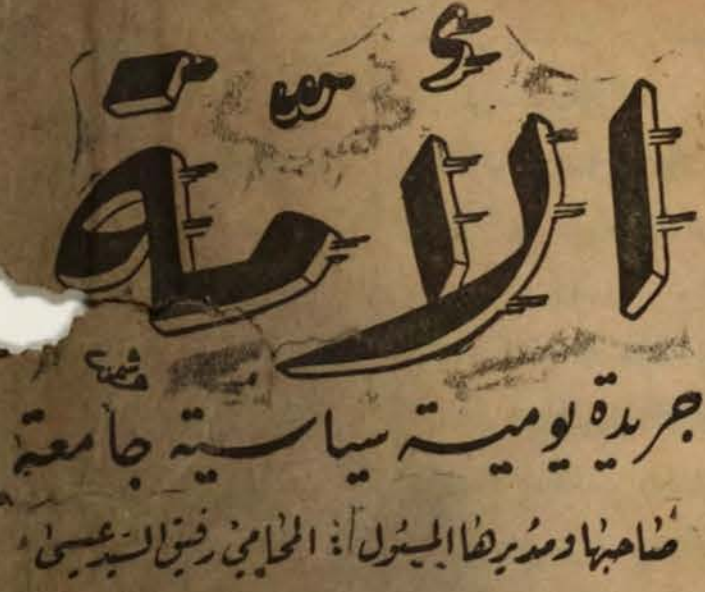 الأمّة
جريدة يومية سياسية جامعة
صاحبها ومديرها المسئول : المحامي رفيق السيد عيسى